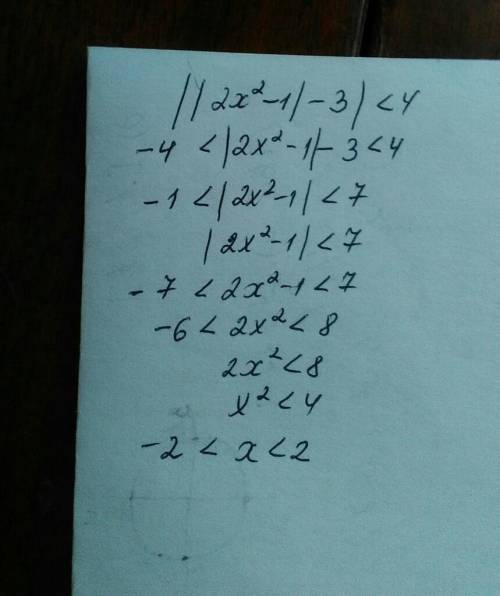 ||2x²-1|-3|<4
-4 <|2x²-1|-3<4
-1 <|2x²-1| <7
|2x²-1|<7
-7 <2x²-1<7
-6 < 2x² < 8
2x²<8
x²<4
-2 < x <2